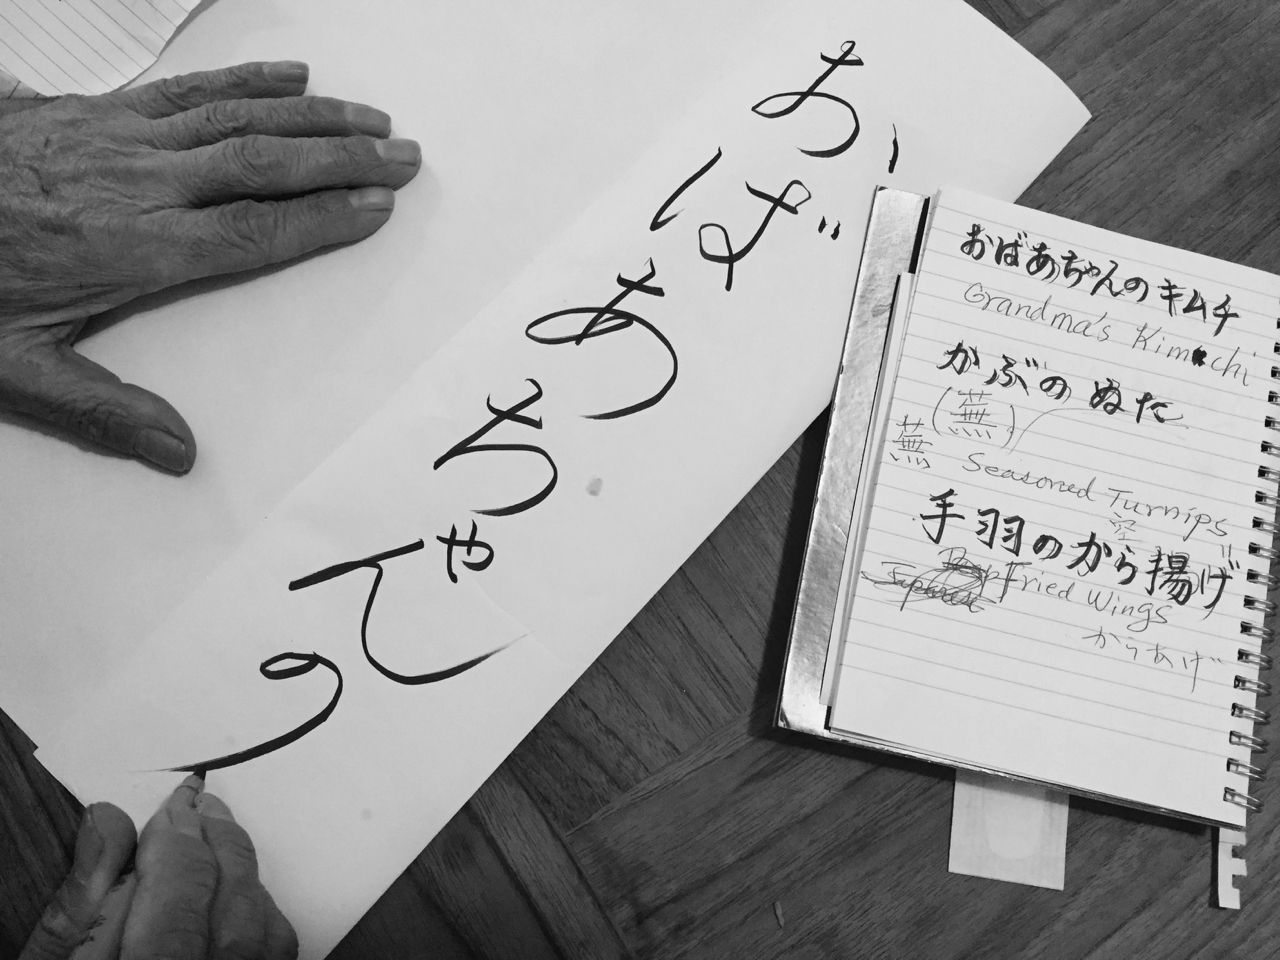 おばあちゃんの
おばあちゃんのキムチ
Grandma's Kimchi
かぶのぬた
(蕪)
蕪 Seasoned Turnips
空
手羽のから揚げ
Fried Wings
からあげ